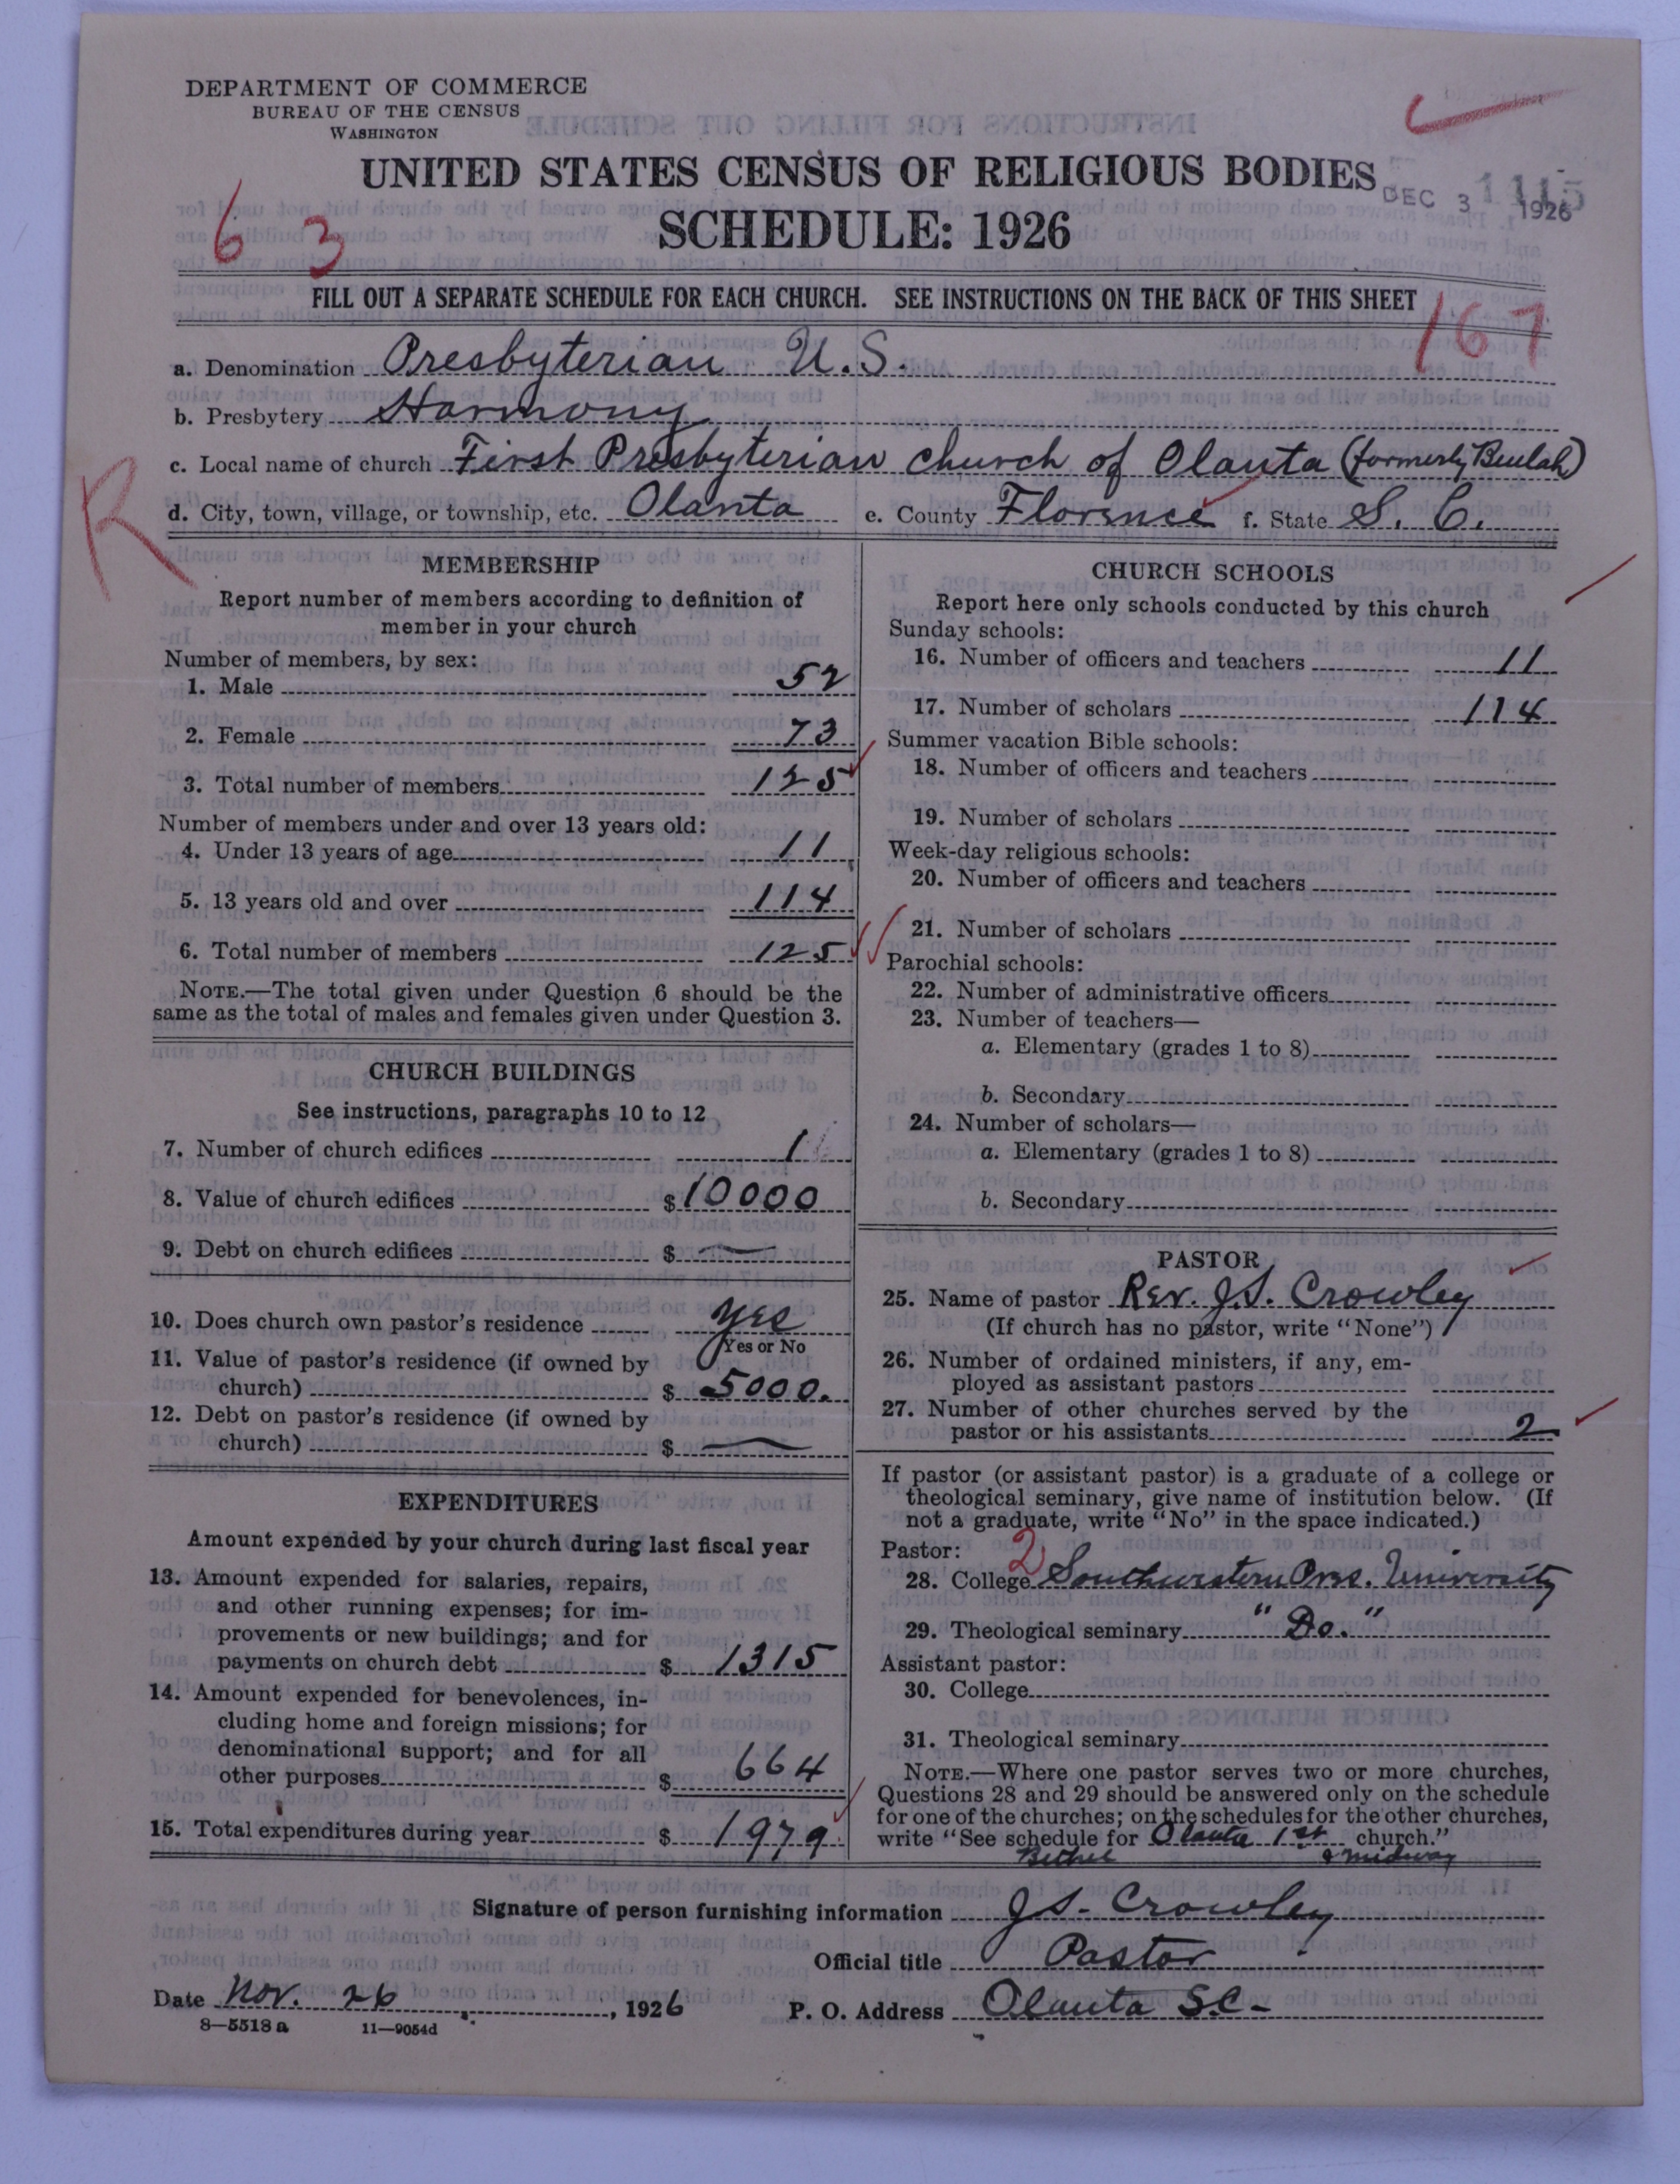 DEPARTMENT OF COMMERCE
BUREAU OF THE CENSUS
WASHINGTON
UNITED STATES CENSUS OF RELIGIOUS BODIES
DEC 3 1926
SCHEDULE: 1926
6 3
FILL OUT A SEPARATE SCHEDULE FOR EACH CHURCH. SEE INSTRUCTIONS ON THE BACK OF THIS SHEET
167
a. Denomination Presbyterian U.S.
b. Presbytery Harmony
c. Local name of church First Presbyterian church of Olanta (formerly Beulah)
R
d. City, town, village, or township, etc. Olanta e. County Florence f. State S. C.
MEMBERSHIP
Report number of members according to definition of
member in your church
Number of members, by sex:
1. Male 52
2. Female 73
3. Total number of members 125
Number of members under and over 13 years old:
4. Under 13 years of age 11
5. 13 years old and over 114
6. Total number of members 125
NOTE.—The total given under Question 6 should be the
same as the total of males and females given under Question 3.
CHURCH BUILDINGS
See instructions, paragraphs 10 to 12
7. Number of church edifices 1
8. Value of church edifices $ 10000
9. Debt on church edifices $ —
10. Does church own pastor's residence yes
Yes or No
11. Value of pastor's residence (if owned by
church) $ 5000.
12. Debt on pastor's residence (if owned by
church) $ —
EXPENDITURES
Amount expended by your church during last fiscal year
13. Amount expended for salaries, repairs,
and other running expenses; for im-
provements or new buildings; and for
payments on church debt $ 1315
14. Amount expended for benevolences, in-
cluding home and foreign missions; for
denominational support; and for all
other purposes $ 664
15. Total expenditures during year $ 1979
CHURCH SCHOOLS
Report here only schools conducted by this church
Sunday schools:
16. Number of officers and teachers 11
17. Number of scholars 114
Summer vacation Bible schools:
18. Number of officers and teachers
19. Number of scholars
Week-day religious schools:
20. Number of officers and teachers
21. Number of scholars
Parochial schools:
22. Number of administrative officers
23. Number of teachers—
a. Elementary (grades 1 to 8)
b. Secondary
24. Number of scholars—
a. Elementary (grades 1 to 8)
b. Secondary
PASTOR
25. Name of pastor Rev. J.S. Crowley
(If church has no pastor, write "None")
26. Number of ordained ministers, if any, em-
ployed as assistant pastors
27. Number of other churches served by the
pastor or his assistants 2
If pastor (or assistant pastor) is a graduate of a college or
theological seminary, give name of institution below. (If
not a graduate, write "No" in the space indicated.)
Pastor: 2
28. College Southwestern Pres. University
29. Theological seminary "Do."
Assistant pastor:
30. College
31. Theological seminary
NOTE.—Where one pastor serves two or more churches,
Questions 28 and 29 should be answered only on the schedule
for one of the churches; on the schedules for the other churches,
write "See schedule for Olanta 1st church."
Bethel & Midway
Signature of person furnishing information J.S. Crowley
Official title Pastor
Date Nov. 26, 1926 P. O. Address Olanta S.C.
8—5518 a 11—9054d